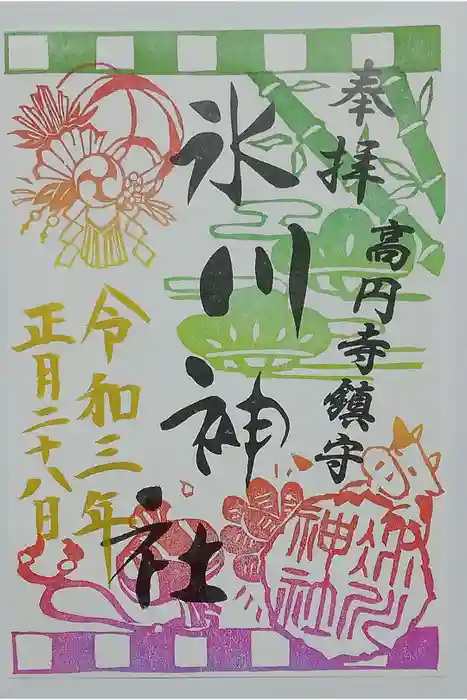 奉拝
高円寺鎮守
氷川神社
令和三年
正月二十八日
氷川
神社